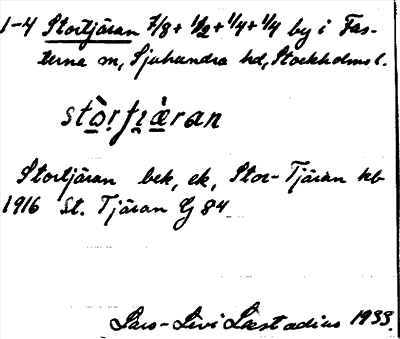 1-4 Stortjäran 7/8 + 1/2 + 1/4 + 1/4 by i Fas-
terna sn, Sjuhundra hd, Stockholms l.
Stortjäran bek, ek, Stor-Tjäran kb
1916 St. Tjäran Gj 84
Lars-Levi Læstadius 1933.